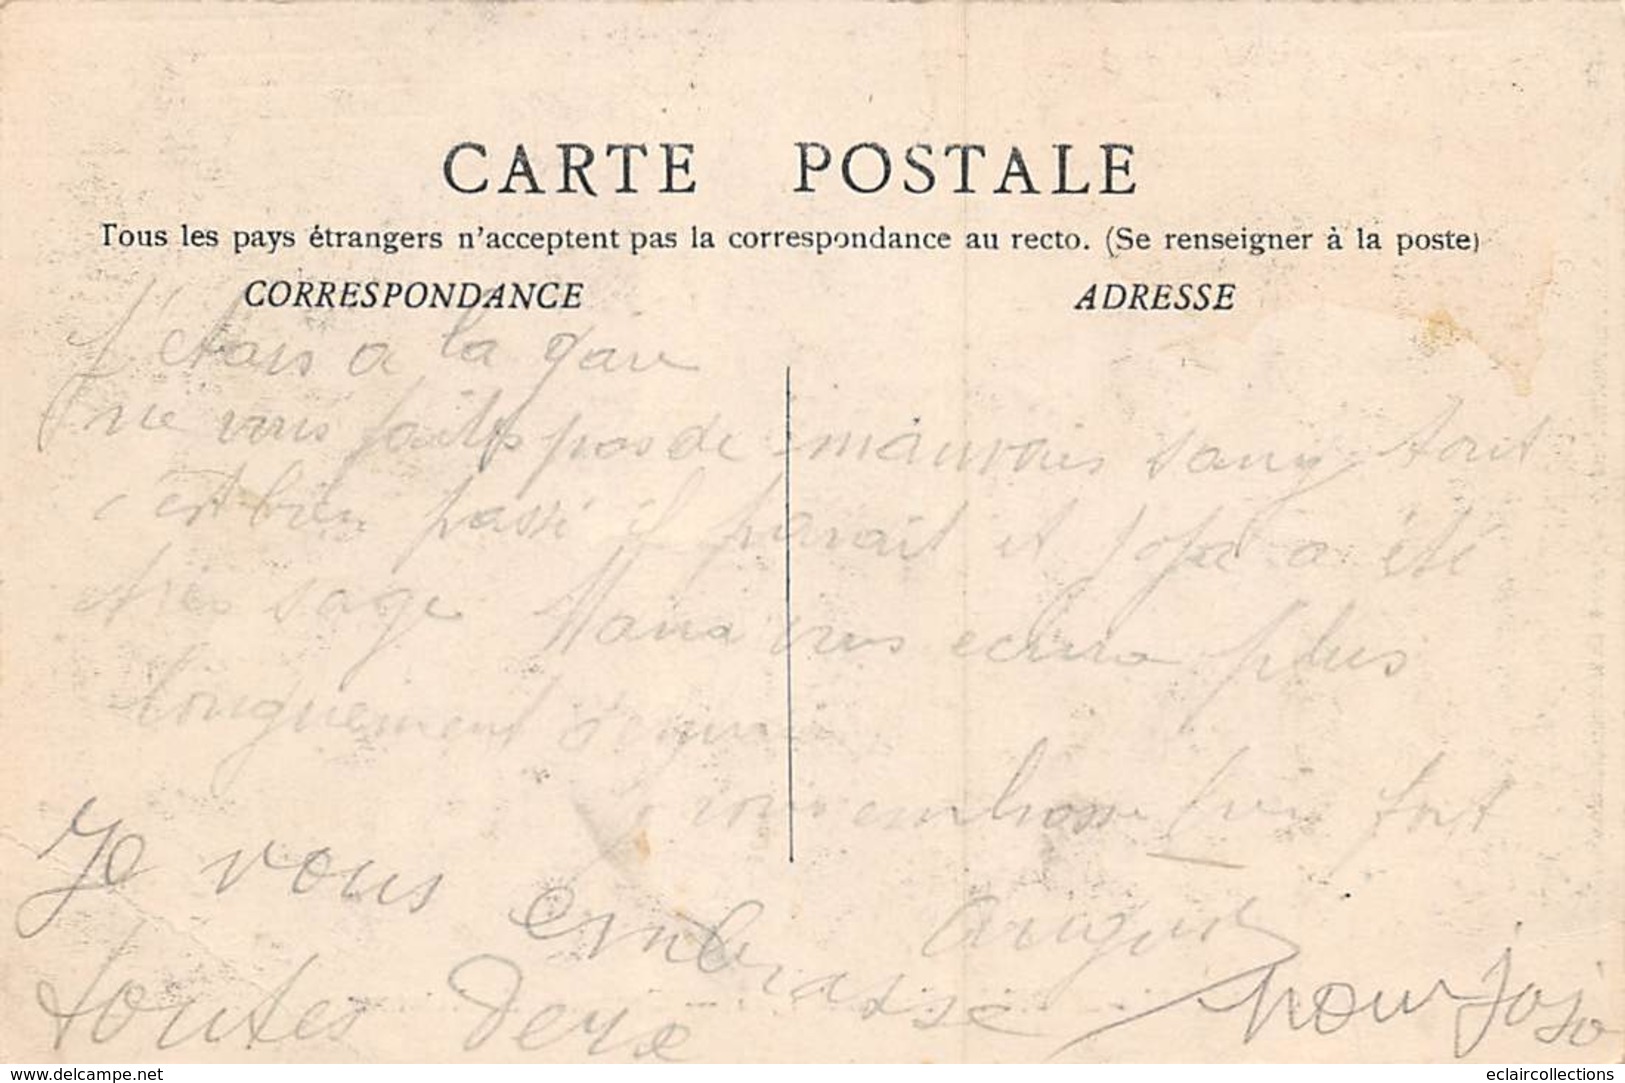 CARTE POSTALE
Tous les pays étrangers n'acceptent pas la correspondance au recto. (Se renseigner à la poste)
CORRESPONDANCE
ADRESSE
J'étais a la gare
ne vous faites pas de mauvais sang tout
c'est bien passé il parait et a été
très sage vous ecrira plus
longuement
vous embrasse fort
Je vous embrasse
toutes deux
pour Jojo
www.delcampe.net
eclaircollections